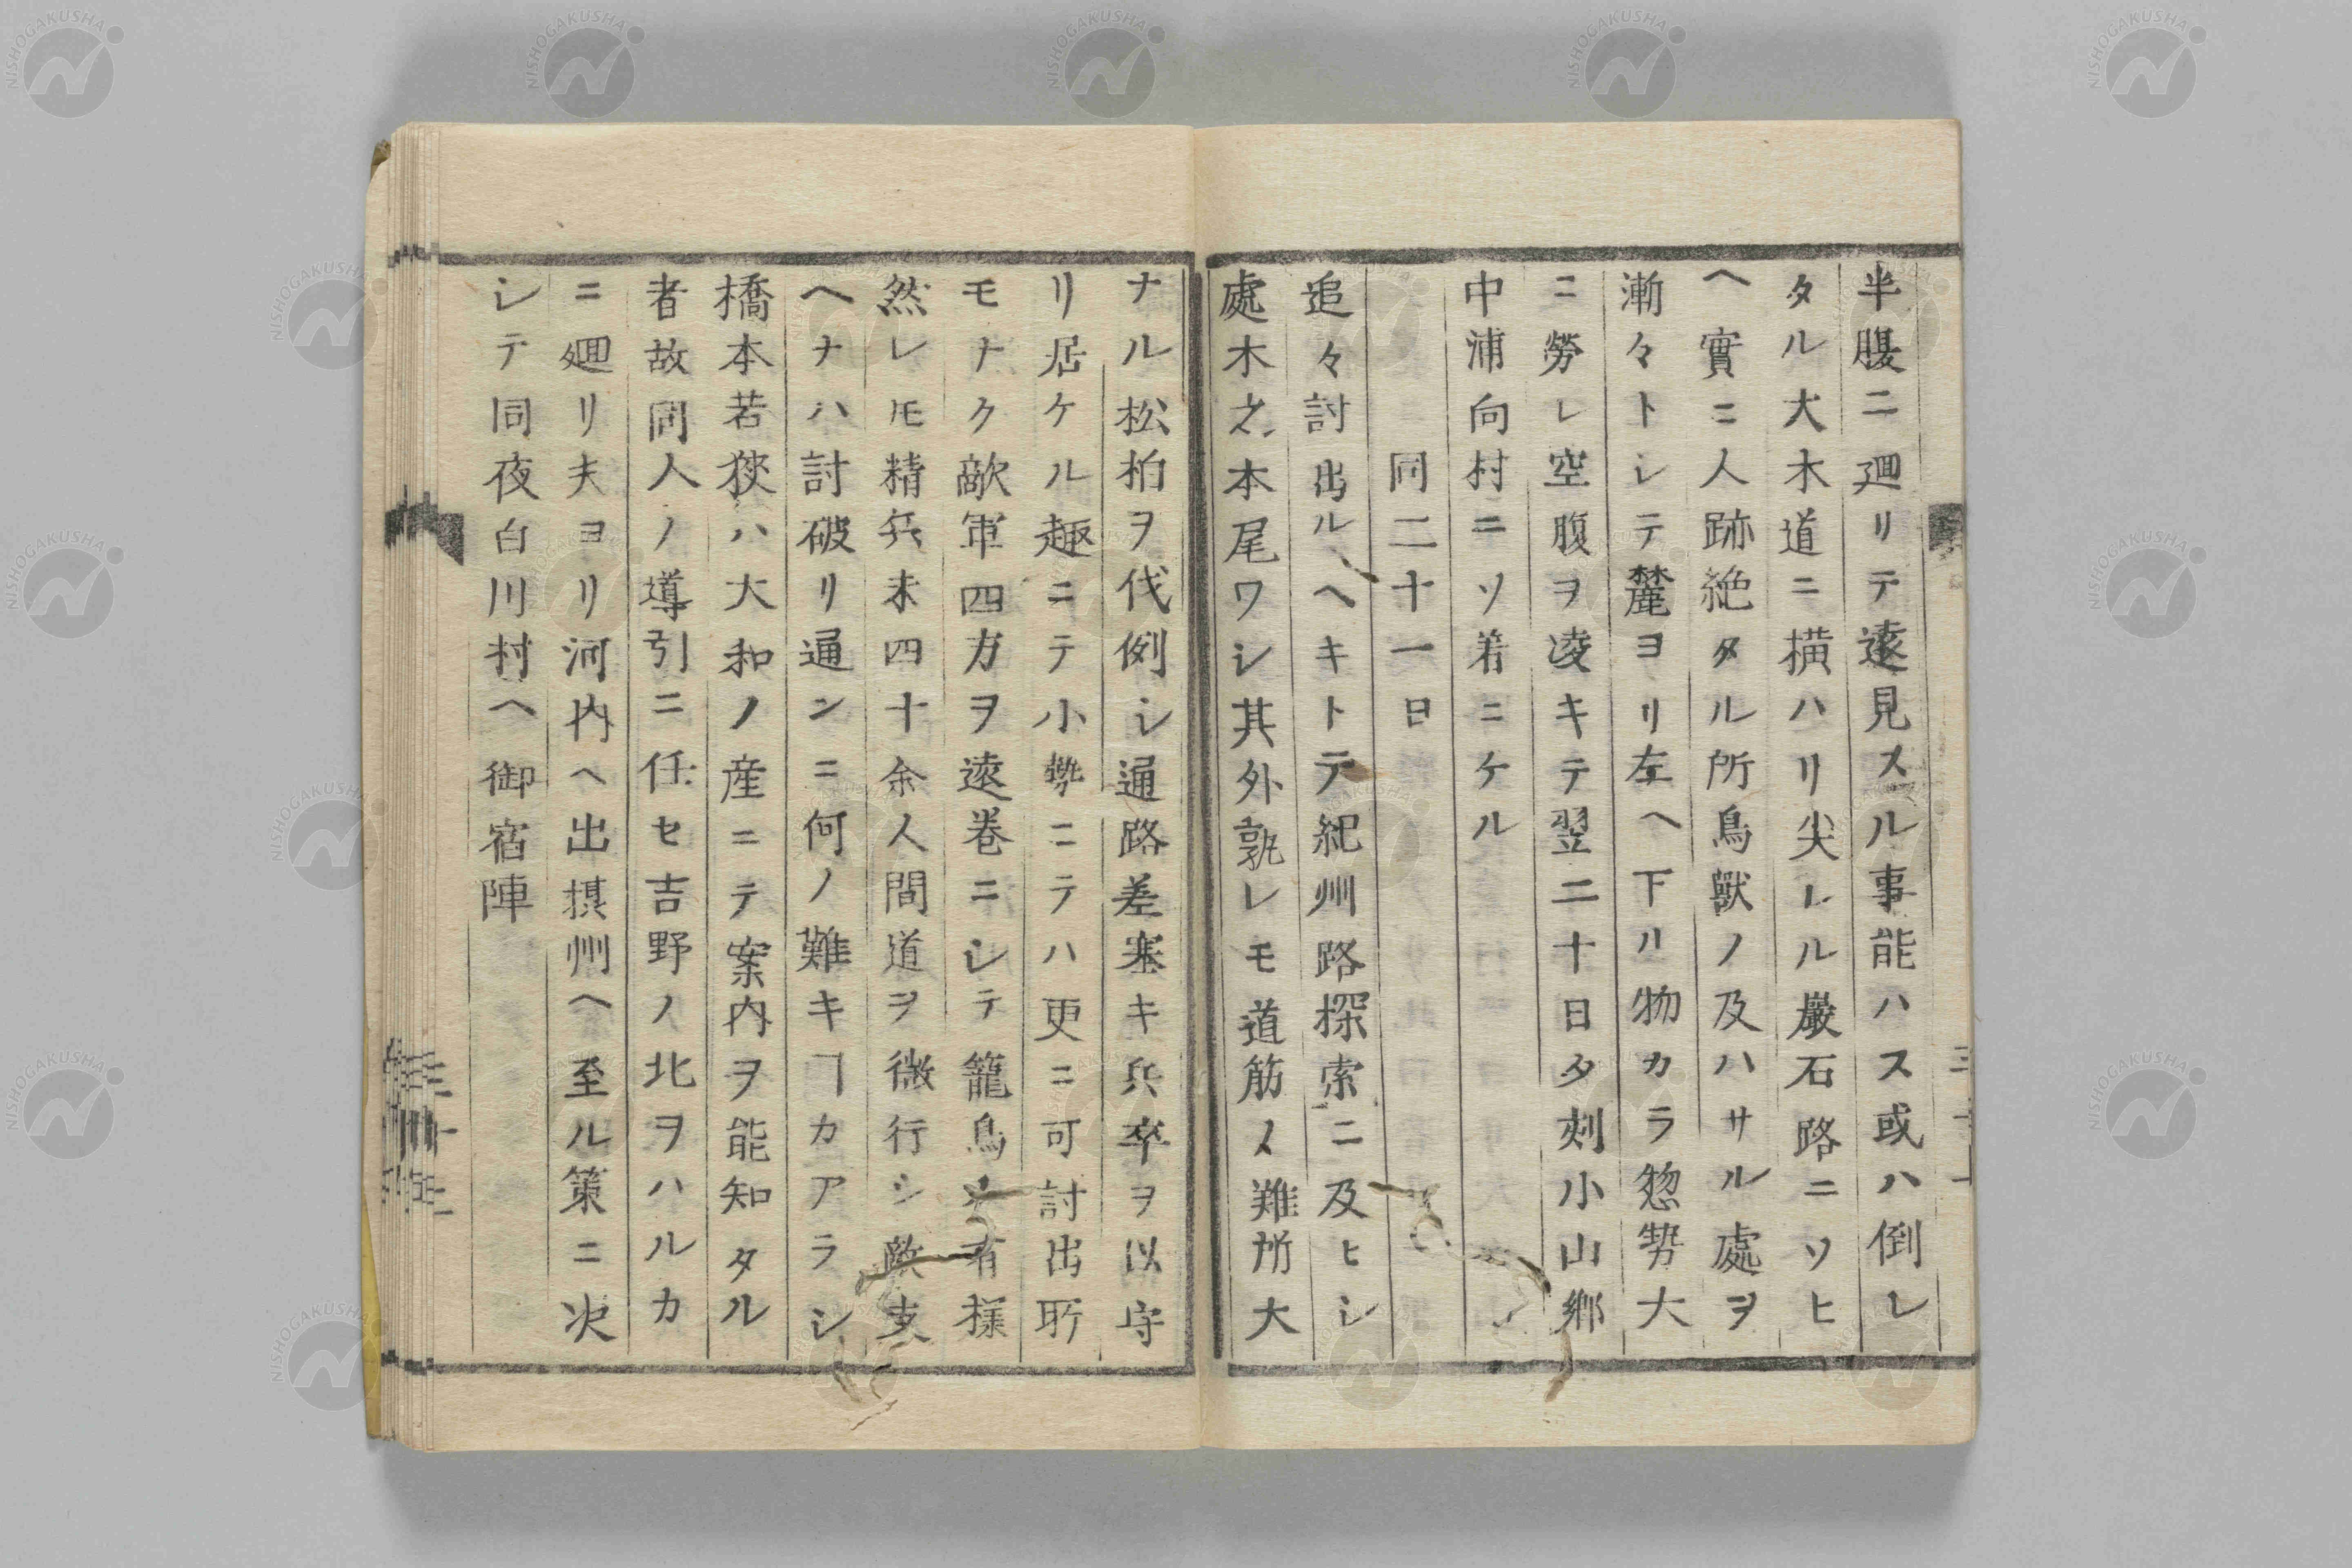 半腹ニ廻リテ遠見スル事能ハス或ハ倒レ
タル大木道ニ横ハリ尖レル巌石路ニソヒ
ヘ實ニ人跡絶タル所鳥獸ノ及ハサル處ヲ
漸々トシテ麓ヨリ左ヘ下ル物カラ惣勢大
ニ勞レ空腹ヲ凌キテ翌二十日夕刻小山郷
中浦向村ニソ着ニケル
同二十一日
追々討出ルヘキトテ紀州路探索ニ及ヒシ
處木之本尾ワシ其外孰レモ道筋ノ難所大
ナル松柏ヲ伐倒シ通路差塞キ兵卒ヲ以守
リ居ケル趣ニテ小勢ニテハ更ニ可討出所
モナク敵軍四方ヲ遠巻ニシテ籠鳥ノ有様
然レ𪜈精兵未四十余人間道ヲ微行シ敵支
ヘナハ討破リ通ンニ何ノ難キヿカアラシ
橋本若狹ハ大和ノ産ニテ案内ヲ能知タル
者故同人ノ導引ニ任セ吉野ノ北ヲハルカ
ニ廻リ夫ヨリ河内ヘ出摂州ヘ至ル策ニ决
シテ同夜白川村ヘ御宿陣
NISHOGAKUSHA